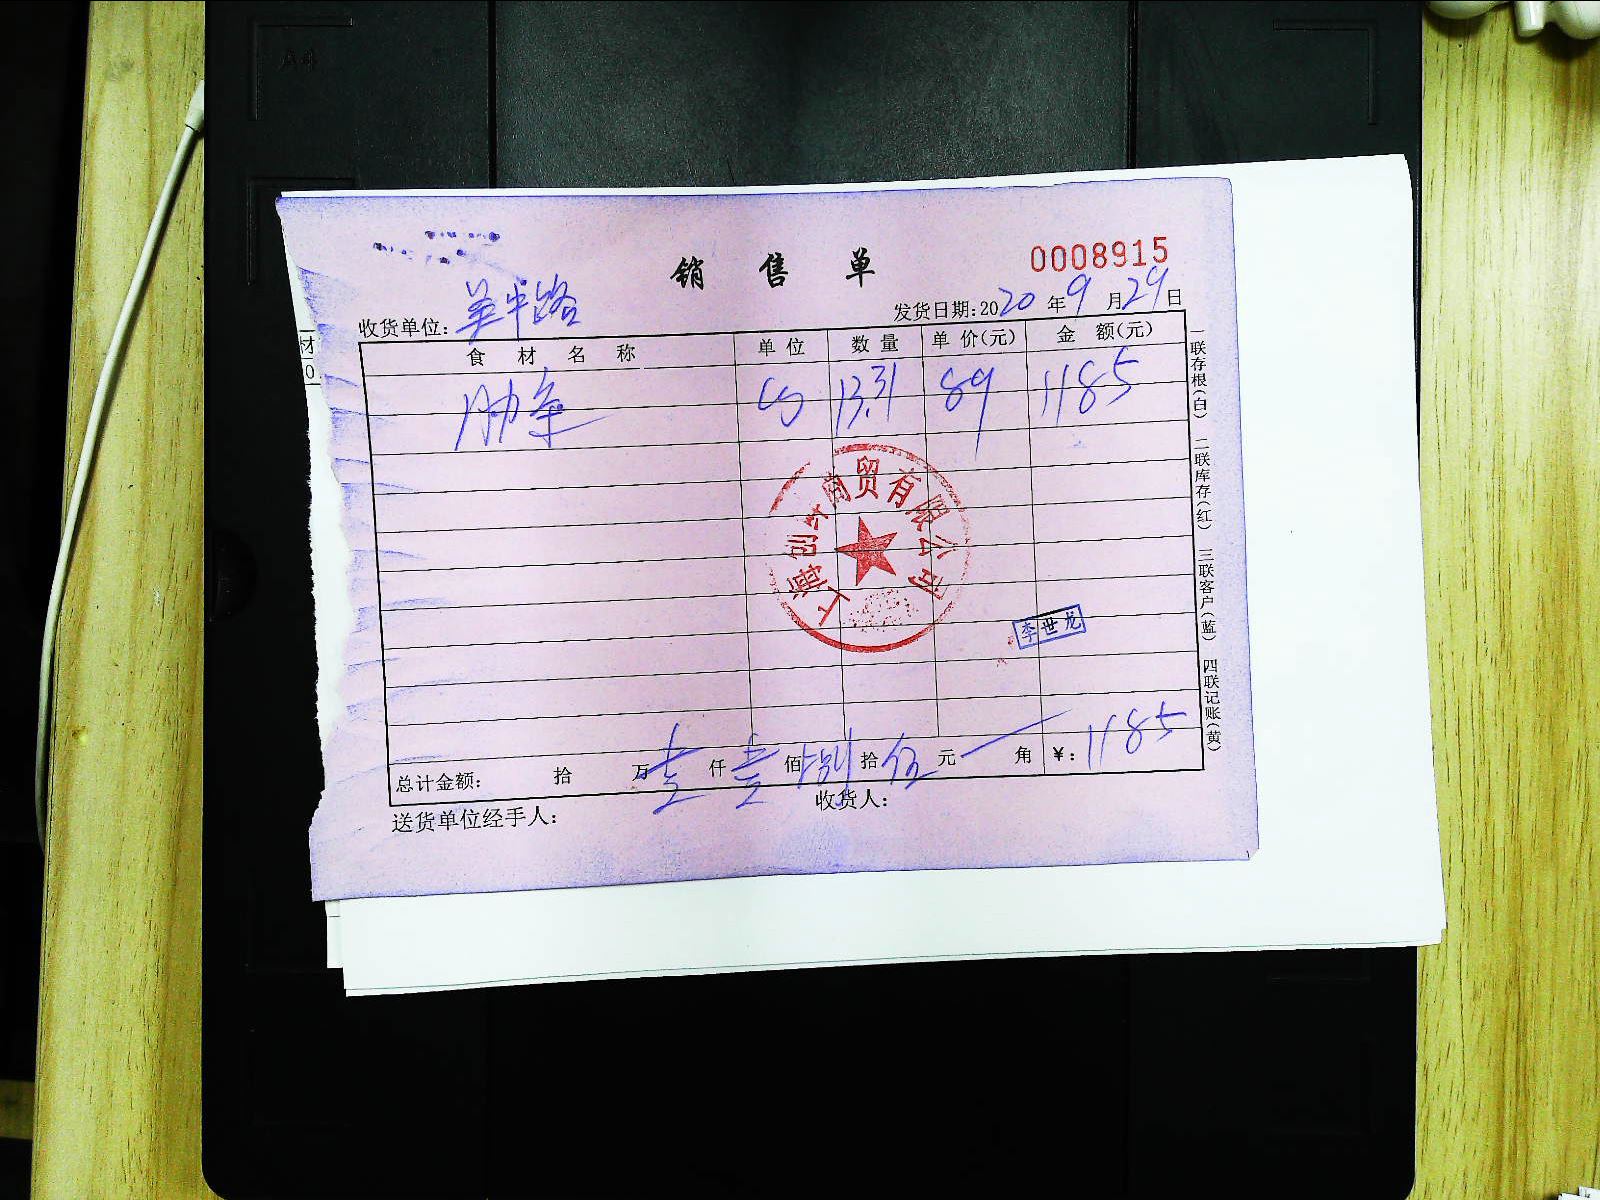 销 售 单
0008915
收货单位:
发货日期:2020 年 9 月 29 日
食 材 名 称 单 位 数 量 单 价(元) 金 额(元)
肋条 13.31 89 1185
上海创牛商贸有限公司
李世龙
总计金额: 拾 万 壹 仟 壹 佰 捌 拾 伍 元 角 ¥: 1185
送货单位经手人: 收货人:
一联存根(白) 二联库存(红) 三联客户(蓝) 四联记账(黄)